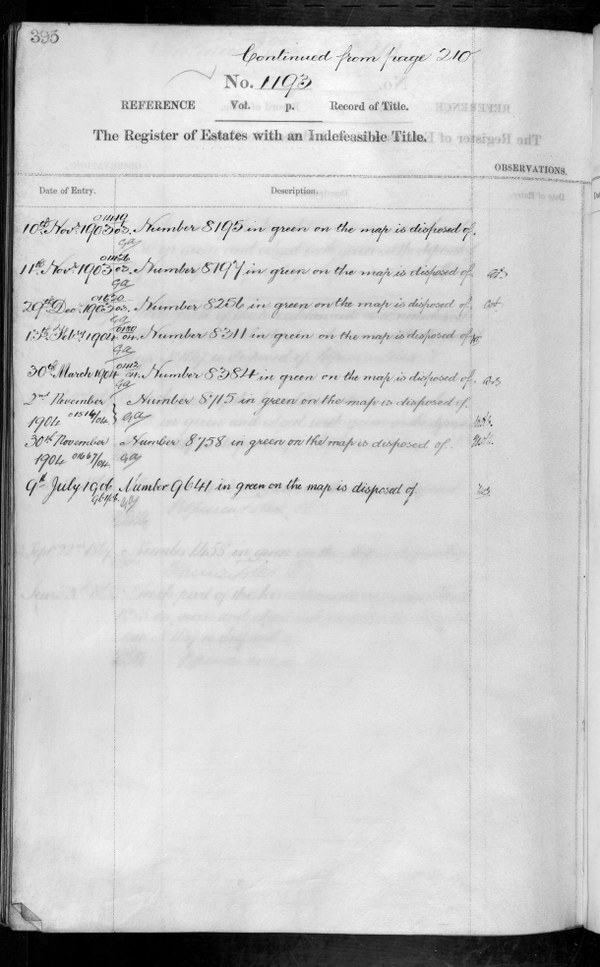 395
Continued from page 210
No. 1193
REFERENCE Vol. p. Record of Title.
The Register of Estates with an Indefeasible Title.
OBSERVATIONS.
Date of Entry. Description.
10th Novr. 1903 Number 8195 in green on the map is disposed of.
11th Novr. 1903 Number 8197 in green on the map is disposed of.
29th Decr. 1903 Number 8256 in green on the map is disposed of.
13th Feby. 1904 Number 8311 in green on the map is disposed of
30th March 1904 Number 8384 in green on the map is disposed of.
2nd November Number 8715 in green on the map is disposed of.
1904
30th November Number 8758 in green on the map is disposed of.
1904
9th July 1906 Number 9641 in green on the map is disposed of